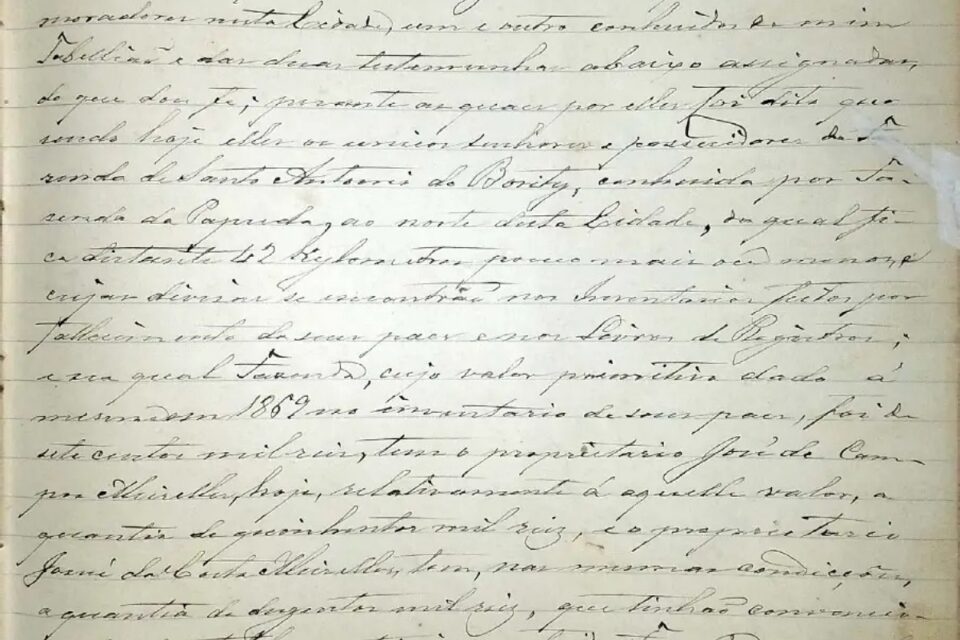 moradores nesta Cidade, um e outro conhecidos de mim
Tabellião e das duas testemunhas abaixo assignadas,
do que dou fé; perante as quaes por elles foi dito que
sendo hoje elles os unicos senhores e possuidores da Fa-
zenda de Santo Antonio do Bority, conhecida por Fa-
zenda da Papuda, ao norte desta Cidade, da qual fi-
ca distante 42 Kylometros pouco mais ou menos, e
cujas divisas se encontrão nos Inventarios feitos por
fallecimento de seus paes e nos Livros de Registros;
e na qual Fazenda, cujo valor primitivo dado á
mesma em 1869 no inventario de seus paes, foi de
sete centos mil reis, tem o proprietario José de Cam-
pos Meirelles, hoje, relativamente á aquelle valor, a
quantia de quinhentos mil reis, e o proprietario
José da Costa Meirelles, tem, nas mesmas condicções,
a quantia de duzentos mil reis, que tinhão convencio-